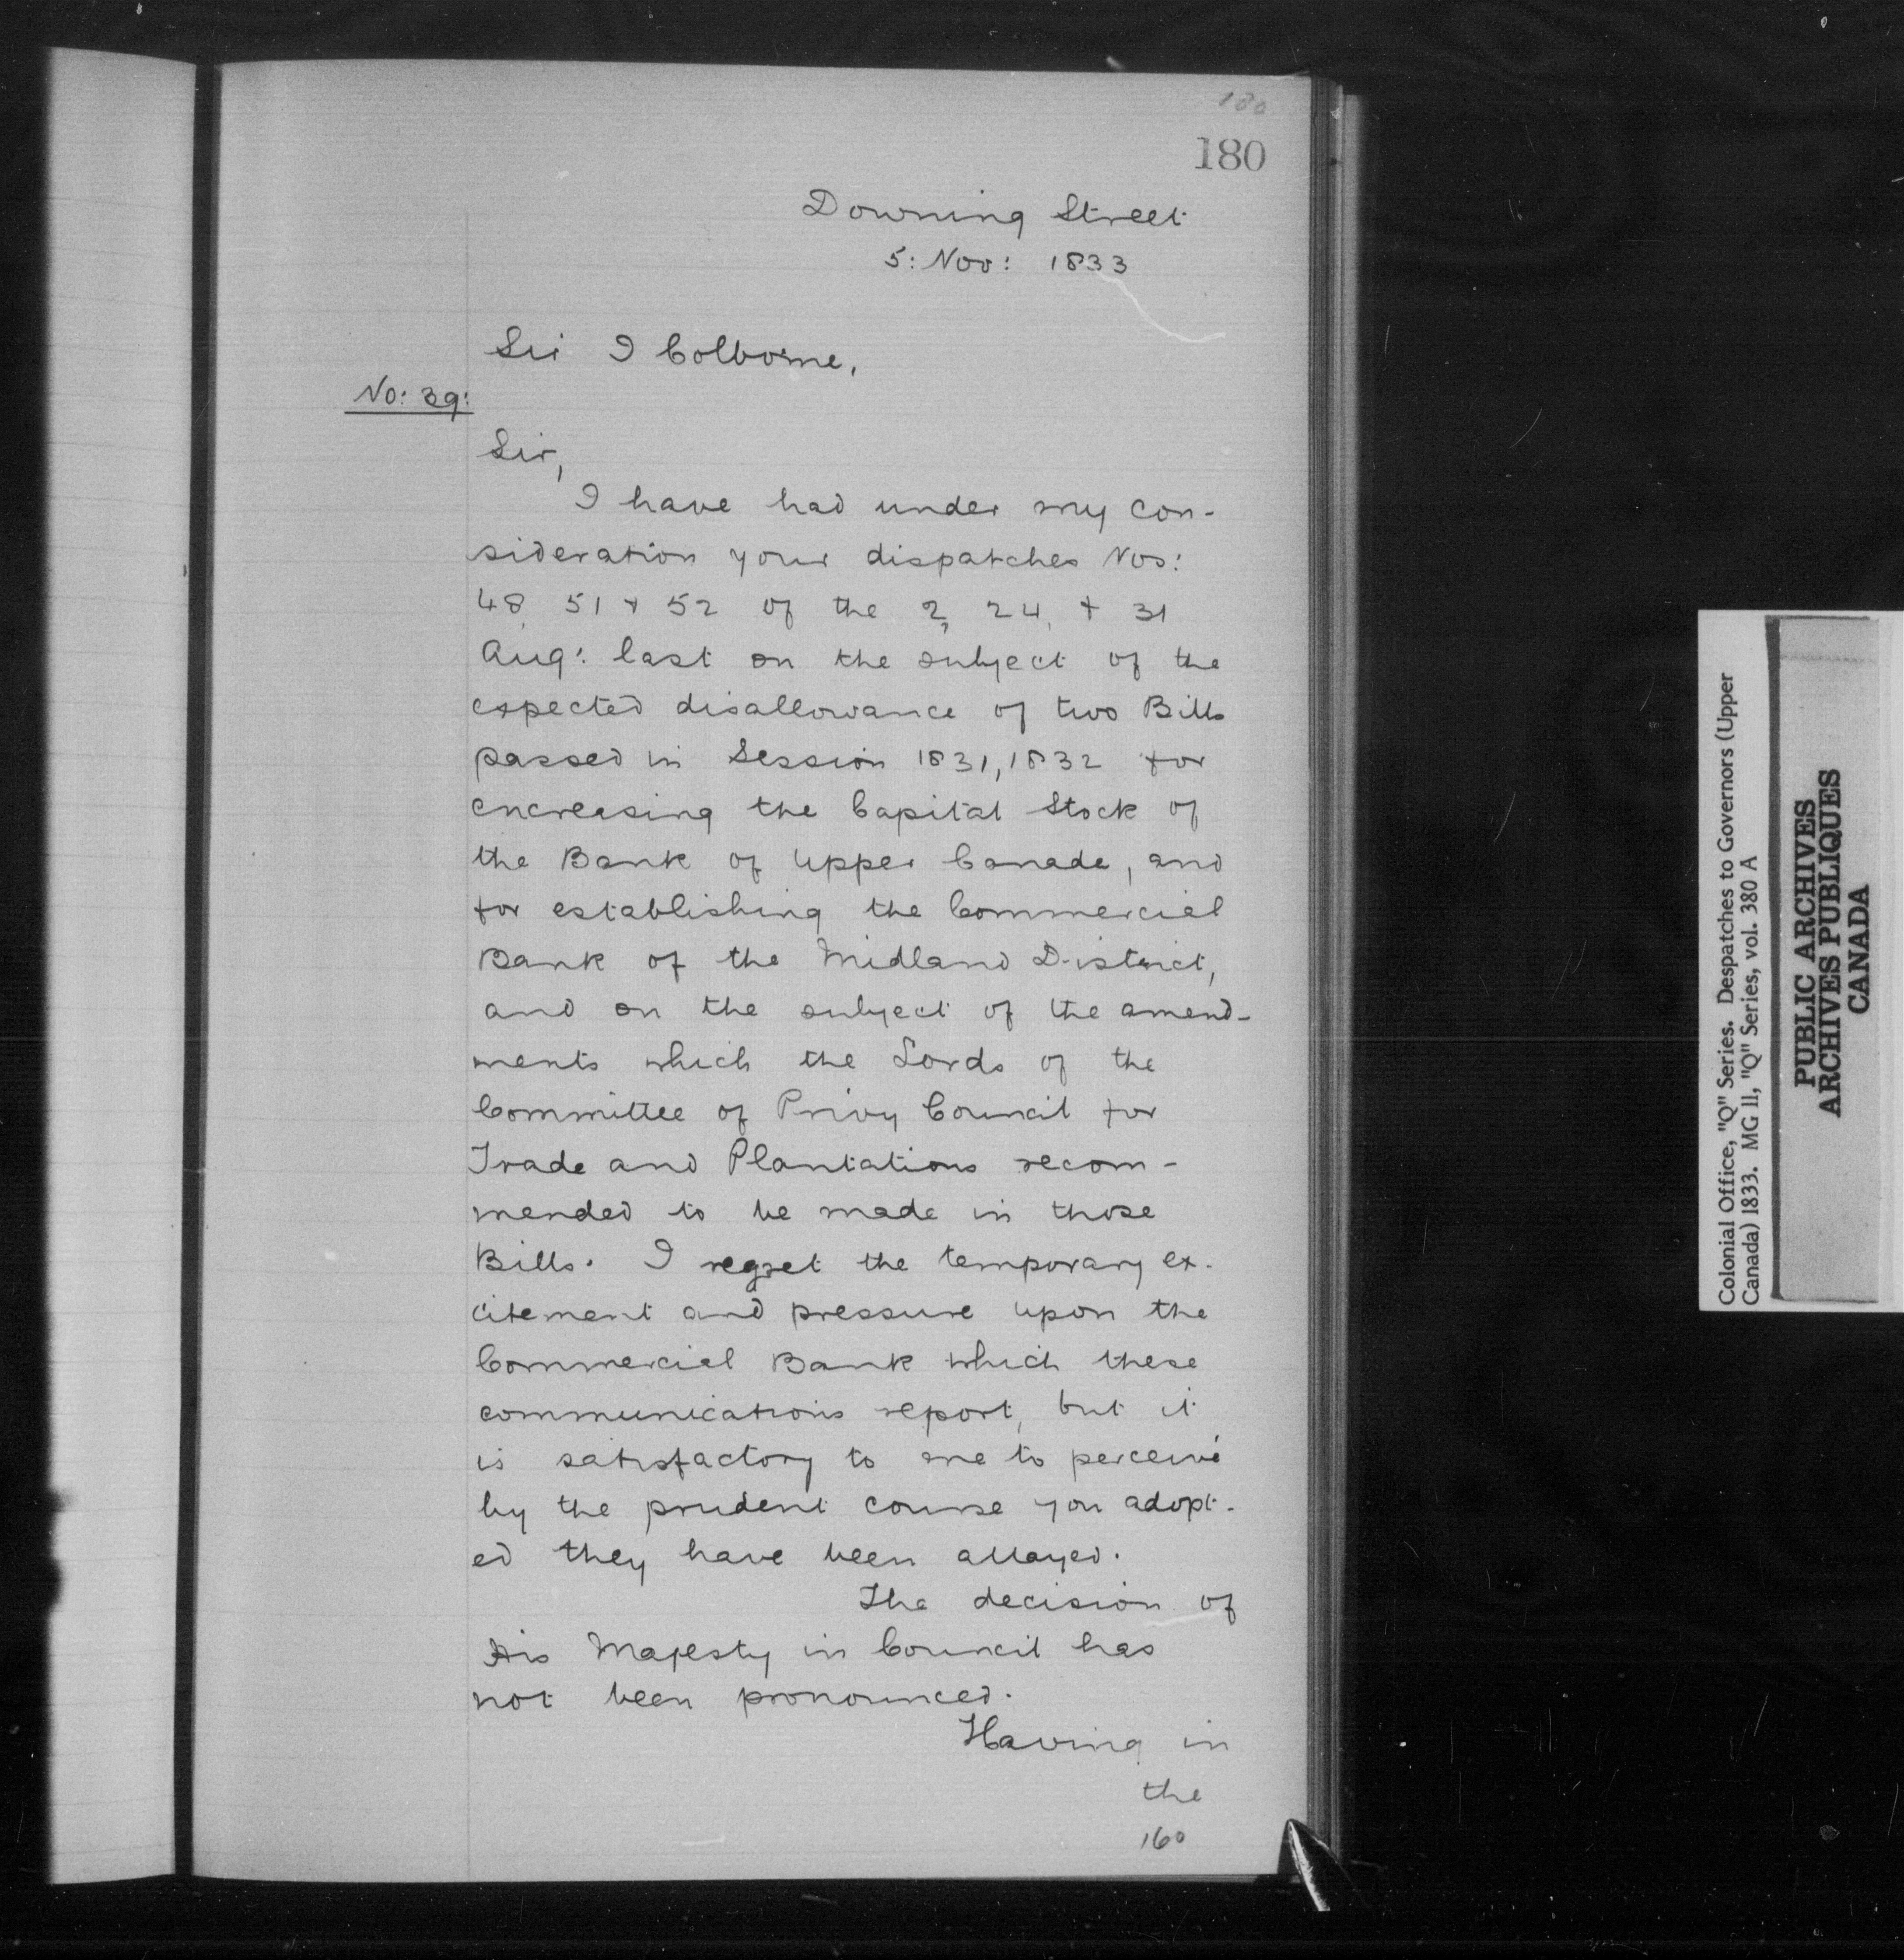 180
180
Downing Street
5: Nov: 1833
Sir J Colborne,
No: 39:
Sir,
I have had under my con-
sideration your dispatches Nos:
48, 51 + 52 of the 2, 24, + 31
Aug: last on the subject of the
expected disallowance of two Bills
passed in Session 1831, 1832 for
encreasing the Capital Stock of
the Bank of Upper Canada, and
for establishing the Commercial
Bank of the Midland District,
and on the subject of the amend-
ments which the Lords of the
Committee of Privy Council for
Trade and Plantations recom-
mended to be made in those
Bills. I regret the temporary ex-
citement and pressure upon the
Commercial Bank which these
communications report, but it
is satisfactory to me to perceive
by the prudent course you adopt-
ed they have been allayed.
The decision of
His Majesty in Council has
not been pronounced.
Having in
the
160
Colonial Office, "Q" Series. Despatches to Governors (Upper
Canada) 1833. MG 11, "Q" Series, vol. 380 A
PUBLIC ARCHIVES
ARCHIVES PUBLIQUES
CANADA